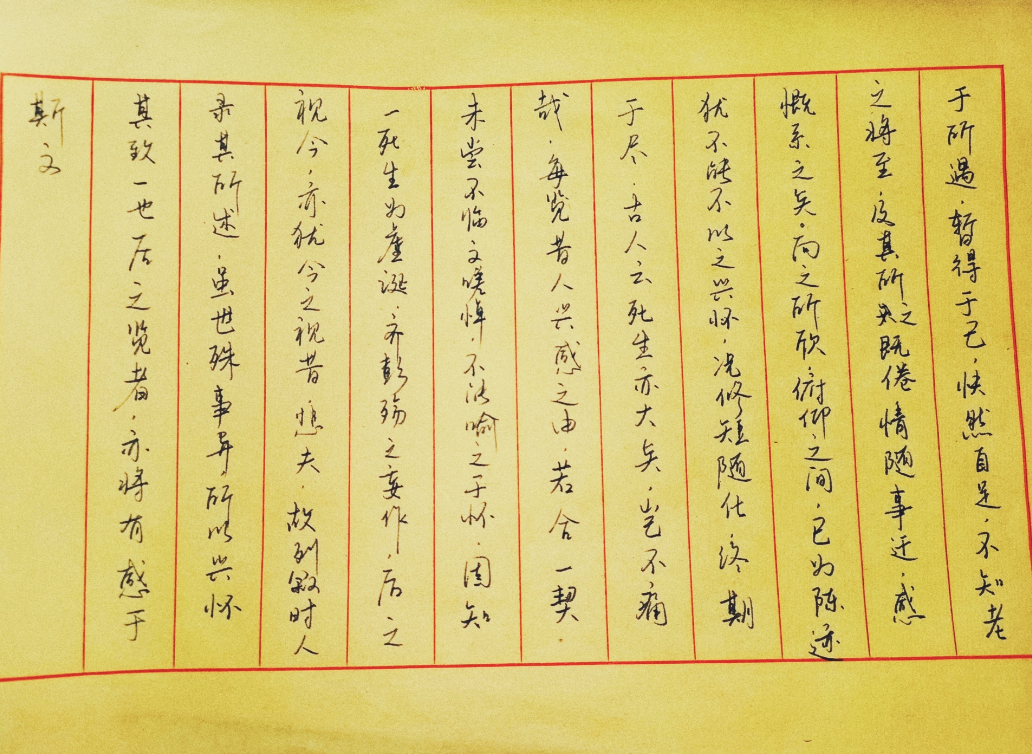 于所遇，暂得于己，快然自足，不知老
之将至，及其所之既倦，情随事迁，感
慨系之矣，向之所欣，俯仰之间，已为陈迹
犹不能不以之兴怀，况修短随化，终期
于尽，古人云死生亦大矣，岂不痛
哉，每览昔人兴感之由，若合一契，
未尝不临文嗟悼，不能喻之于怀，固知
一死生为虚诞，齐彭殇之妄作，后之
视今，亦犹今之视昔，悲夫，故列叙时人
录其所述，虽世殊事异，所以兴怀
其致一也后之览者，亦将有感于
斯文